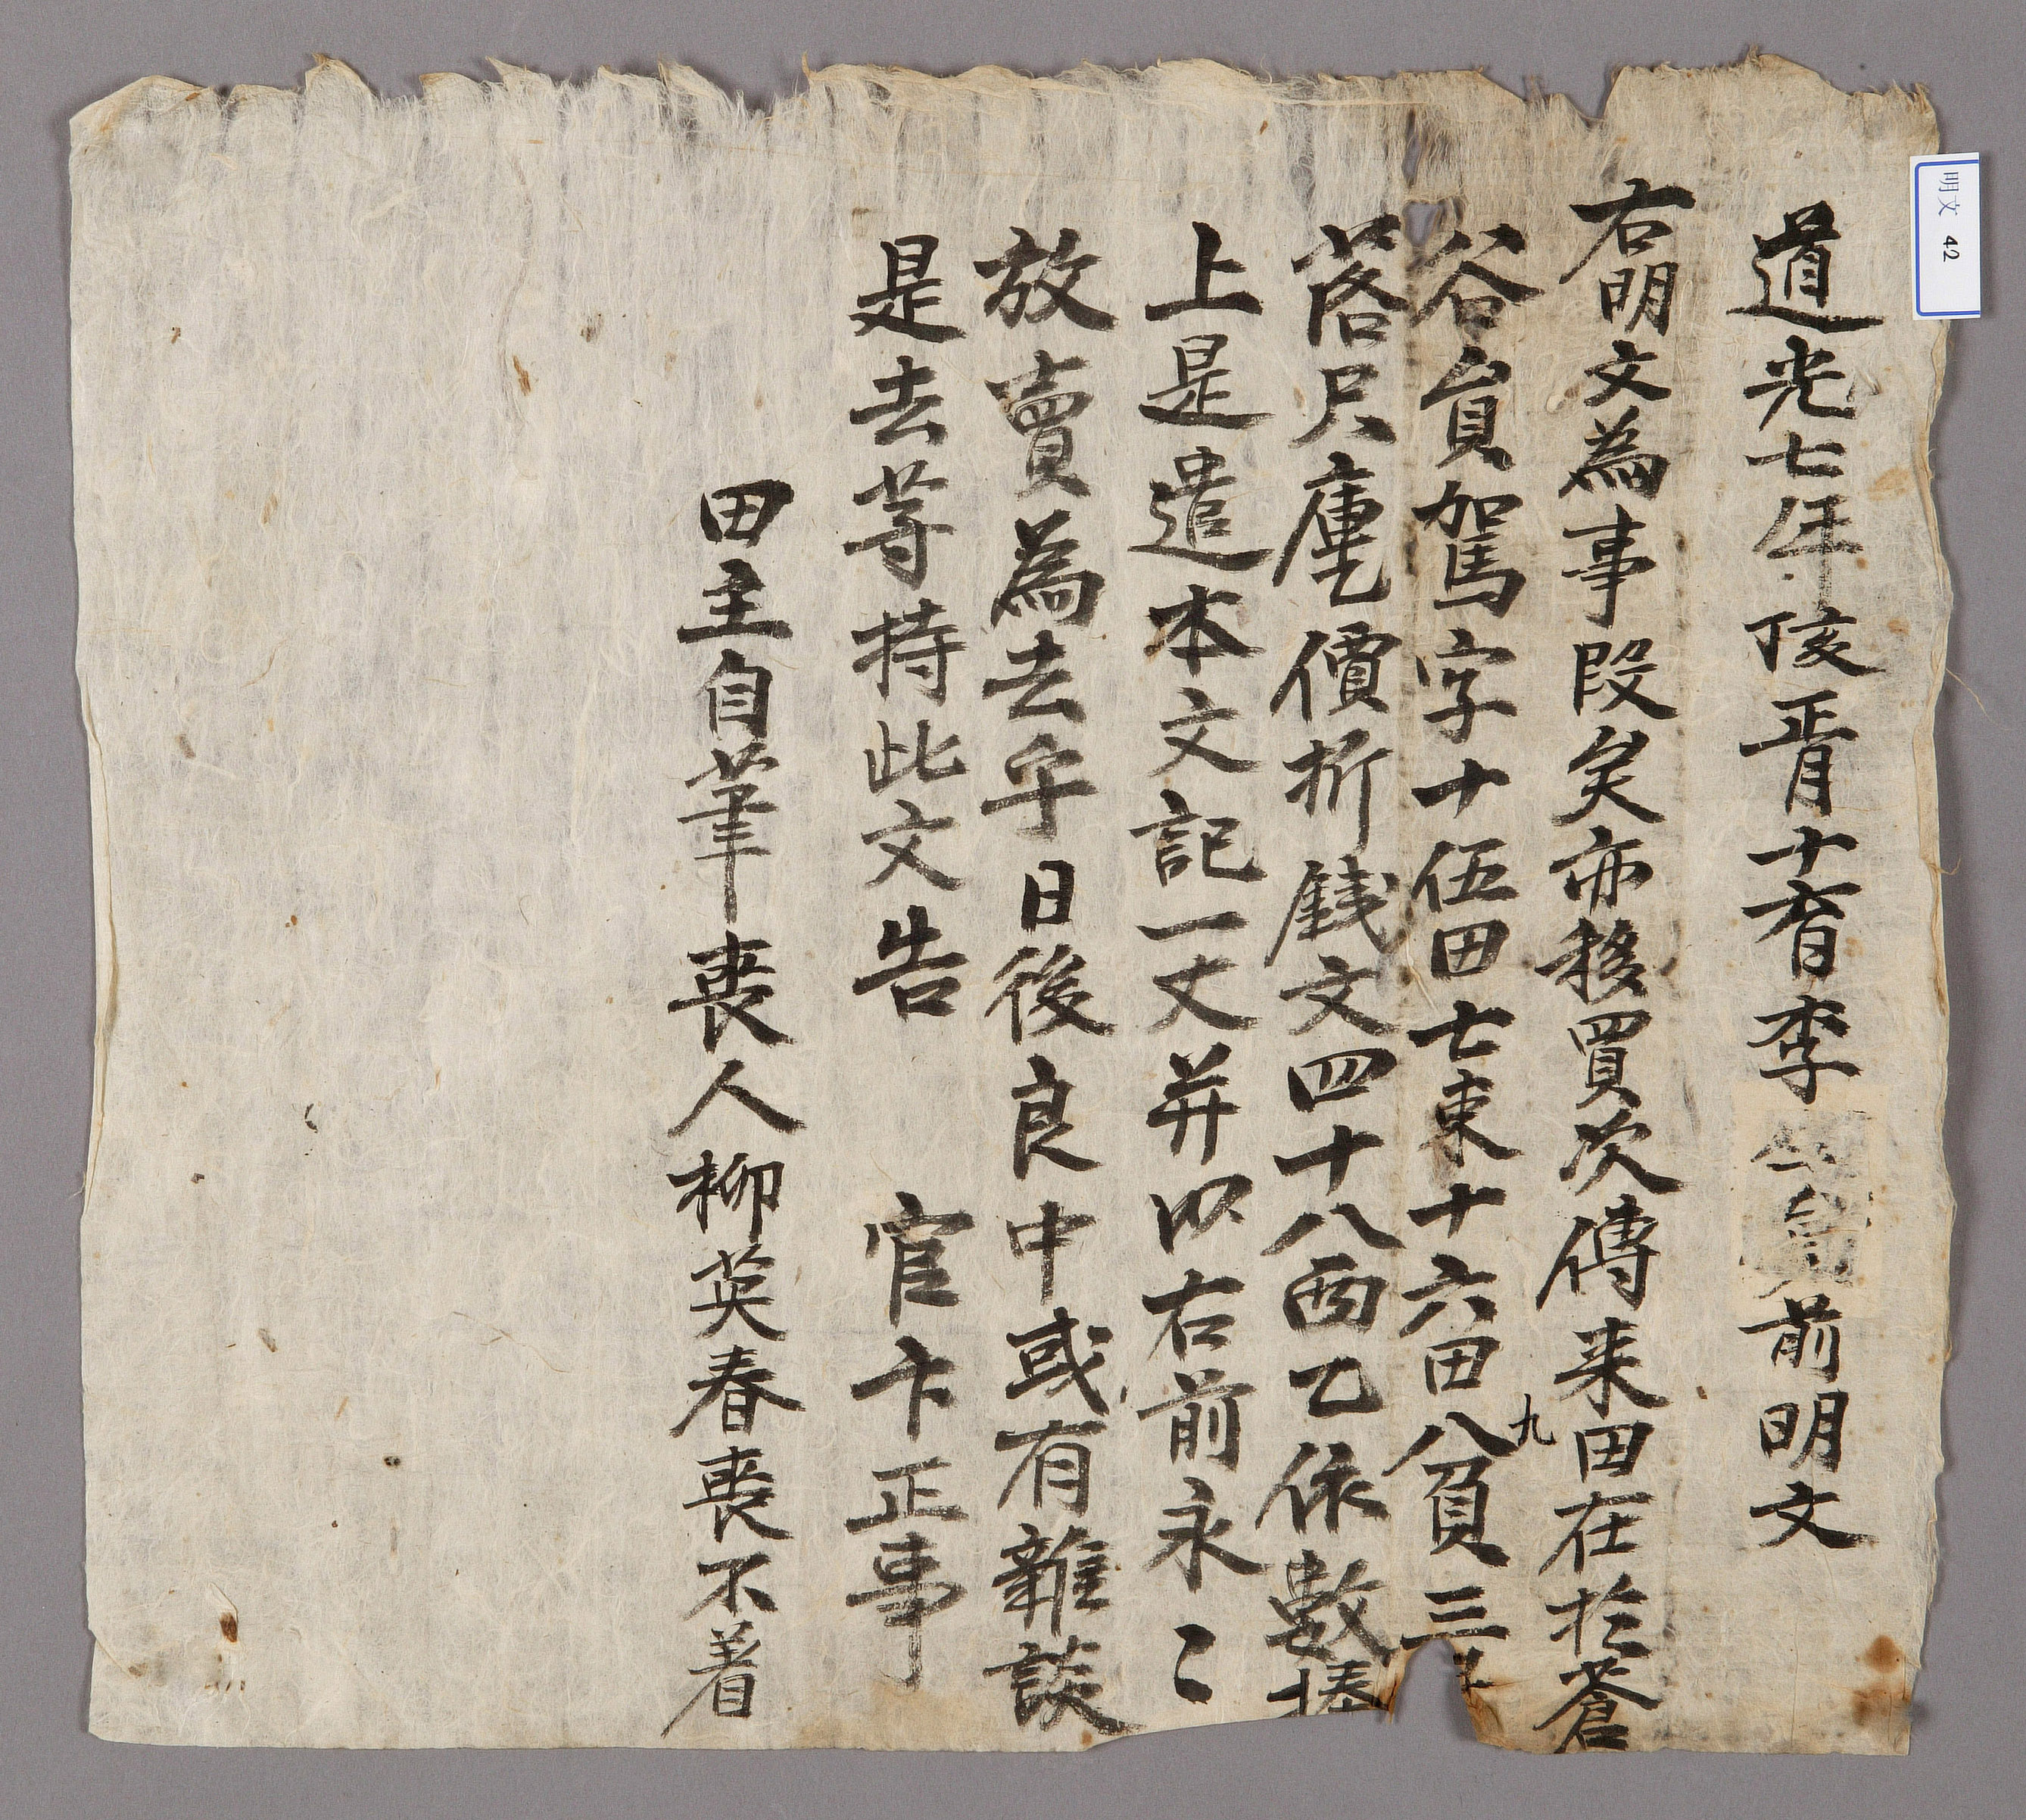 道光七年丁亥正月十六日李前明文
右明文為事段矣亦移買次傳来田在於蒼
谷員駕字十伍田七束十六田八九負三
落只庫㐣價折錢文四十八両乙依數捧
上是遣本文記一丈并以右前永〻
放賣為去乎日後良中或有雜談
是去等持此文告官卞正事
田主自筆喪人柳英春喪不着
明文 42